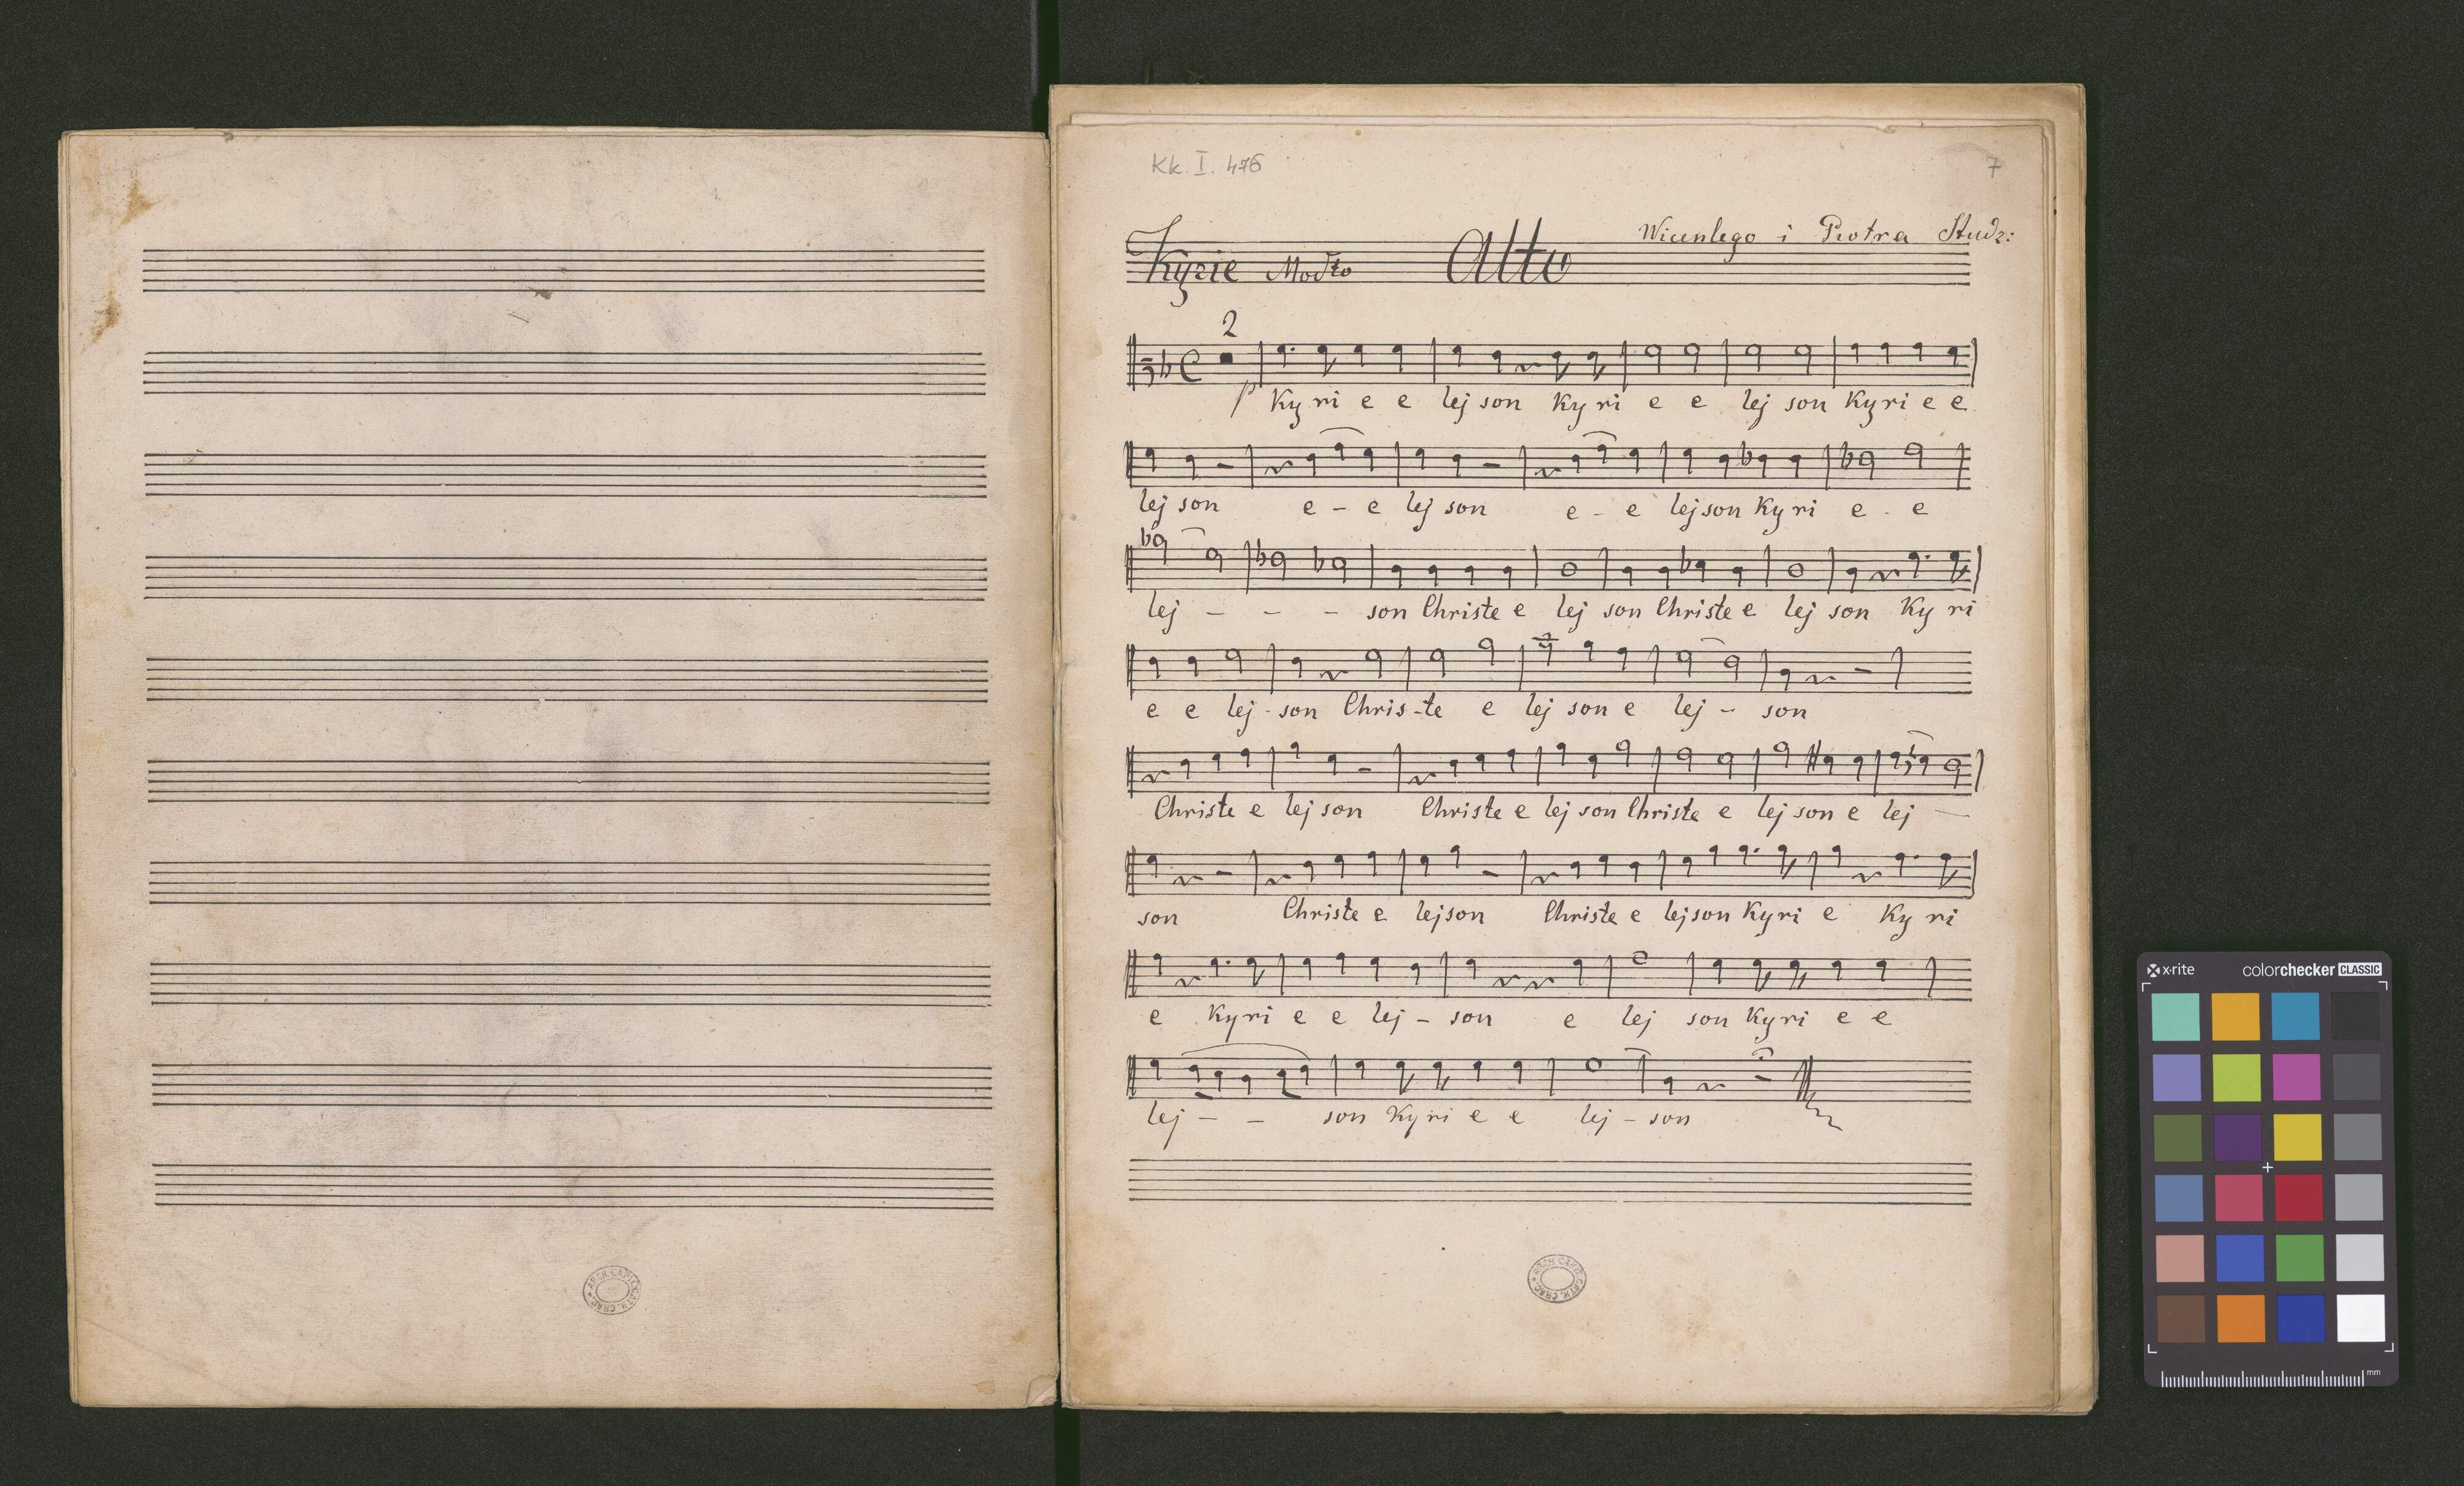 Kk I. 476
7
Wicentego i Piotra Studz:
Kyrie Modto Alto
2
p Ky ri e e lej son Ky ri e e lej son Ky ri e e
lej son e - e lej son e - e lej son Ky ri e - e
lej - - - son Christe e lej son Christe e lej son Ky ri
e e lej - son Chris - te e lej son e lej - son
Christe e lej son Christe e lej son Christe e lej son e lej -
son Christe e lej son Christe e lej son Ky ri e Ky ri
e Ky ri e e lej - son e lej son Ky ri e e
lej - - son Ky ri e e lej - son
ARCH. CAPIT. CATH. CRAC.
ARCH. CAPIT. CATH. CRAC.
x-rite colorchecker CLASSIC
mm